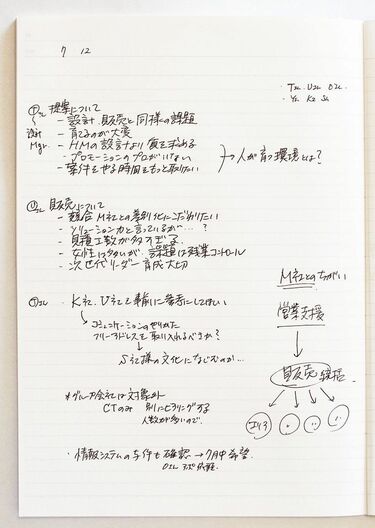 7 12
Tさん Uさん Oさん
・Yさん Kさん Sさん
①Tさん 提案について
設計Mgr.
- 設計、販売と同様の課題
- 育てるのが大変
- HMの設計より質を求める
- プロモーションのプロがいない
- 案件をやる時間をもっと取りたい
→人が育つ環境とは?
②Uさん 販売について
- 競合M社との差別化にこだわりたい
- ソリューション力と言っているが…?
- 見積工数が多すぎる
- 女性に多いが、課題は残業コントロール
- 次世代リーダー育成大切
③Oさん K社、U社を事前に参考にしてほしい
コミュニケーションのやりかた
フリーアドレスを取り入れるべきか?
S社様の文化になじむのか…
*グループ会社は対象外
CTのみ 別にヒアリングする
人数が多いので。
・情報システムの与件も確認→7月中希望
Oさん アポ依頼
M社とのちがい
営業支援
販売統括
エリア